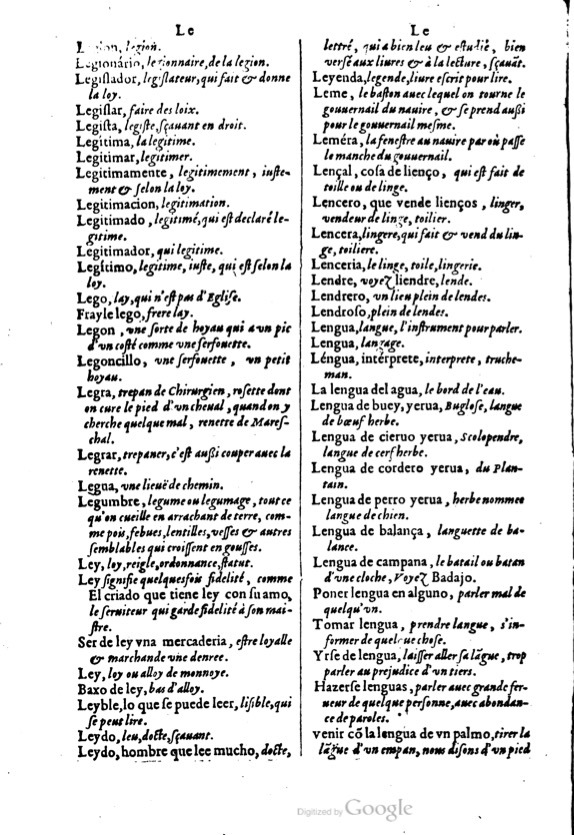 Le
Legion, legion.
Legionàrio, legionnaire, de la legion.
Legiſlador, legiſlateur, qui fait & donne
la loy.
Legiſlar, faire des loix.
Legiſta, legiſte, ſçauant en droit.
Legitima, la legitime.
Legitimar, legitimer.
Legitimamente, legitimement, iuſte-
ment & ſelon la loy.
Legitimacion, legitimation.
Legitimado, legitimé, qui eſt declaré le-
gitime.
Legitimador, qui legitime.
Legitimo, legitime, iuſte, qui eſt ſelon la
loy.
Lego, lay, qui n'eſt pas d'Egliſe.
Frayle lego, frere lay.
Legon, vne ſorte de hoyau qui a vn pic
d'vn coſté comme vne ſerfouette.
Legoncillo, vne ſerfouette, vn petit
hoyau.
Legra, trepan de Chirurgien, roſette dont
on cure le pied d'vn cheual, quand on y
cherche quelque mal, renette de Mareſ-
chal.
Legrar, trepaner, c'eſt auſſi couper auec la
renette.
Legua, vne lieuë de chemin.
Legumbre, legume ou legumage, tout ce
qu'on cueille en arrachant de terre, com-
me pois, febues, lentilles, veſſes & autres
ſemblables qui croiſſent en gouſſes.
Ley, loy, reigle, ordonnance, ſtatut.
Ley ſignifie quelquesfois fidelité, comme
El criado que tiene ley con ſu amo,
le ſeruiteur qui garde fidelité à ſon mai-
ſtre.
Ser de ley vna mercaderia, eſtre loyalle
& marchande vne denree.
Ley, loy ou alloy de monnoye.
Baxo de ley, bas d'alloy.
Leyble, lo que ſe puede leer, liſible, qui
ſe peut lire.
Leydo, leu, docte, ſçauant.
Leydo, hombre que lee mucho, docte,
Le
lettré, qui a bien leu & eſtudié, bien
verſé aux liures & à la lecture, ſçauãt.
Leyenda, legende, liure eſcrit pour lire.
Leme, le baſton auec lequel on tourne le
gouuernail du nauire, & ſe prend auſſi
pour le gouuernail meſme.
Leméra, la feneſtre au nauire par où paſſe
le manche du gouuernail.
Lençal, coſa de lienço, qui eſt fait de
toille ou de linge.
Lencero, que vende lienços, linger,
vendeur de linge, toilier.
Lencera, lingere, qui fait & vend du lin-
ge, toiliere.
Lenceria, le linge, toile, lingerie.
Lendre, voyez liendre, lende.
Lendrero, vn lieu plein de lendes.
Lendroſo, plein de lendes.
Lengua, langue, l'inſtrument pour parler.
Lengua, langage.
Léngua, intérprete, interprete, truche-
man.
La lengua del agua, le bord de l'eau.
Lengua de buey, yerua, Bugloſe, langue
de bœuf herbe.
Lengua de cieruo yerua, Scolopendre,
langue de cerf herbe.
Lengua de cordero yerua, du Plan-
tain.
Lengua de perro yerua, herbe nommee
langue de chien.
Lengua de balança, languette de ba-
lance.
Lengua de campana, le batail ou batan
d'vne cloche, Voyez Badajo.
Poner lengua en alguno, parler mal de
quelqu'vn.
Tomar lengua, prendre langue, s'in-
former de quelque choſe.
Yrſe de lengua, laiſſer aller ſa lãgue, trop
parler au prejudice d'vn tiers.
Hazerſe lenguas, parler auec grande fer-
ueur de quelque perſonne, auec abondan-
ce de paroles.
venir cõ la lengua de vn palmo, tirer la
lãgue d'vn empan, nous diſons d'vn pied
Digitized by Google